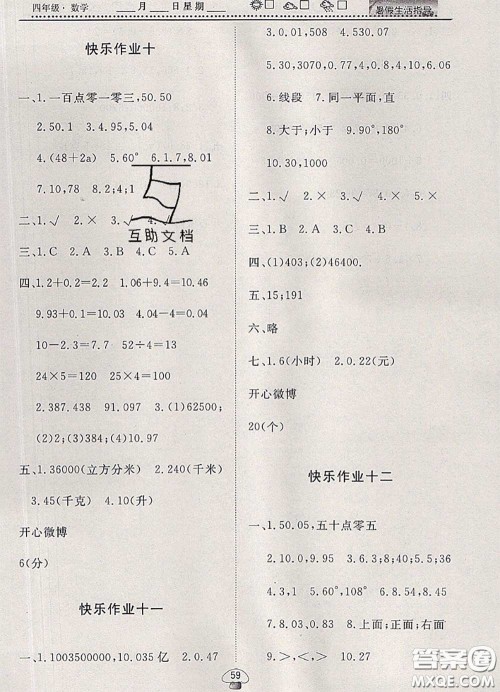 四年级·数学 ___月___日星期___
暑假生活指导
快乐作业十
一、1.一百点零一零三,50.50
2.50.1 3.4.95,5.94
4.(48+2a) 5.60° 6.1.7,8.01
7.10,78 8.2;4;1
二、1.√ 2.× 3.√ 4.
三、1.C 2.A 3.C 4.C 5.A
四、1.2+0.2=2 1.06+9.4=10.46
9.93+0.1=10.03 4×2.2=8.8
10-2.8=7.2 52÷4=13
24×5=120 25×4=100
2.387.438 97.98 3.(1)62500;
(2)384;(3)1520
五、1.36000(立方分米) 2.240(千米)
3.45(千克) 4.10(升)
开心微博
6(分)
快乐作业十一
一、1.1003500000,10.035亿 2.0.47
3.0.01,508 4.
5.30,4070,9.38,6.285
6.线段 7.同一平面,直
8.大于;小于 9.90°,180°
10.30,1000
二、1.√ 2.× 3.√ 4.√
三、1.B 2.A 3.C 4.A
四、(1)403;(2)46400.
五、15;191
六、略
七、1.6(小时) 2.0.22(元)
开心微博
20(个)
快乐作业十二
一、1.50.05,五十点零五
2.10.0,9.95 3.6.63,5.36
4.3,1 5.60°,108° 6.8.54,8.45
7.0.53 8.上面;正面;右面
9.>,>,< 10.27
互助文档
59
答案圈
MXQE.COM